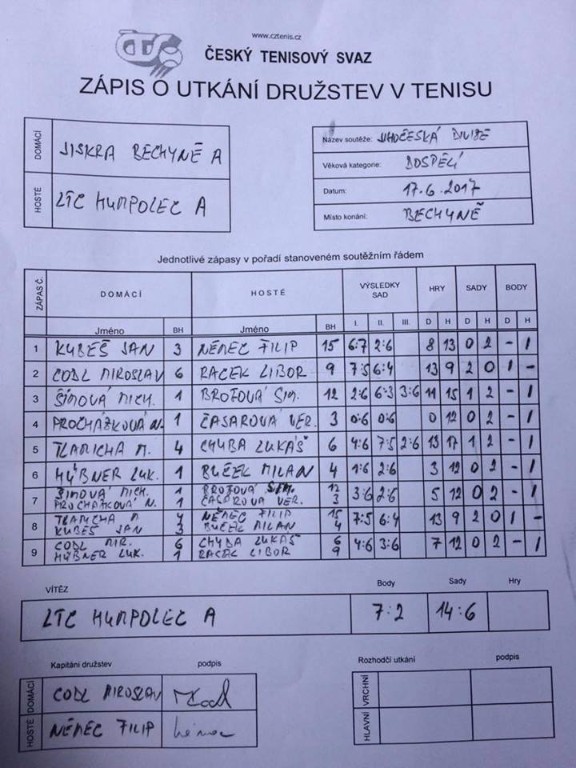 www.cztenis.cz
ČTS
ČESKÝ TENISOVÝ SVAZ
ZÁPIS O UTKÁNÍ DRUŽSTEV V TENISU
DOMÁCÍ JISKRA BECHYNĚ A
HOSTÉ LTC HUMPOLEC A
Název soutěže: JIHOČESKÁ DIVIZE
Věková kategorie: DOSPĚLÍ
Datum: 17.6.2017
Místo konání: BECHYNĚ
Jednotlivé zápasy v pořadí stanoveném soutěžním řádem
ZÁPAS Č. DOMÁCÍ HOSTÉ VÝSLEDKY SAD HRY SADY BODY
Jméno BH Jméno BH I. II. III. D H D H D H
1 KUBEŠ JAN 3 NĚMEC FILIP 15 6:7 2:6 8 13 0 2 - 1
2 CODL MIROSLAV 6 RACEK LIBOR 9 7:5 6:4 13 9 2 0 1 -
3 ŠÍMOVÁ MICH. 1 BROTOVÁ SIM. 12 2:6 6:3 3:6 11 15 1 2 - 1
4 PROCHÁZKOVÁ N. 1 ČASAROVÁ VER. 3 0:6 0:6 0 12 0 2 - 1
5 TLAMICHA M. 4 CHYBA LUKÁŠ 6 4:6 7:5 2:6 13 17 1 2 - 1
6 HÜBNER LUK. 1 BUČEK MILAN 4 1:6 2:6 3 12 0 2 - 1
7 ŠÍMOVÁ MICH. 1 BROTOVÁ SIM. 12 3:6 2:6 5 12 0 2 - 1
PROCHÁZKOVÁ N. 1 ČASAROVÁ VER. 3
8 TLAMICHA M. 4 NĚMEC FILIP 15 7:5 6:4 13 9 2 0 1 -
KUBEŠ JAN 3 BUČEK MILAN 4
9 CODL MIR. 6 CHYBA LUKÁŠ 6 4:6 3:6 7 12 0 2 - 1
HÜBNER LUK. 1 RACEK LIBOR 9
VÍTĚZ Body Sady Hry
LTC HUMPOLEC A 7:2 14:6
Kapitáni družstev podpis
DOMÁCÍ CODL MIROSLAV
HOSTÉ NĚMEC FILIP Němec
Rozhodčí utkání podpis
VRCHNÍ
HLAVNÍ